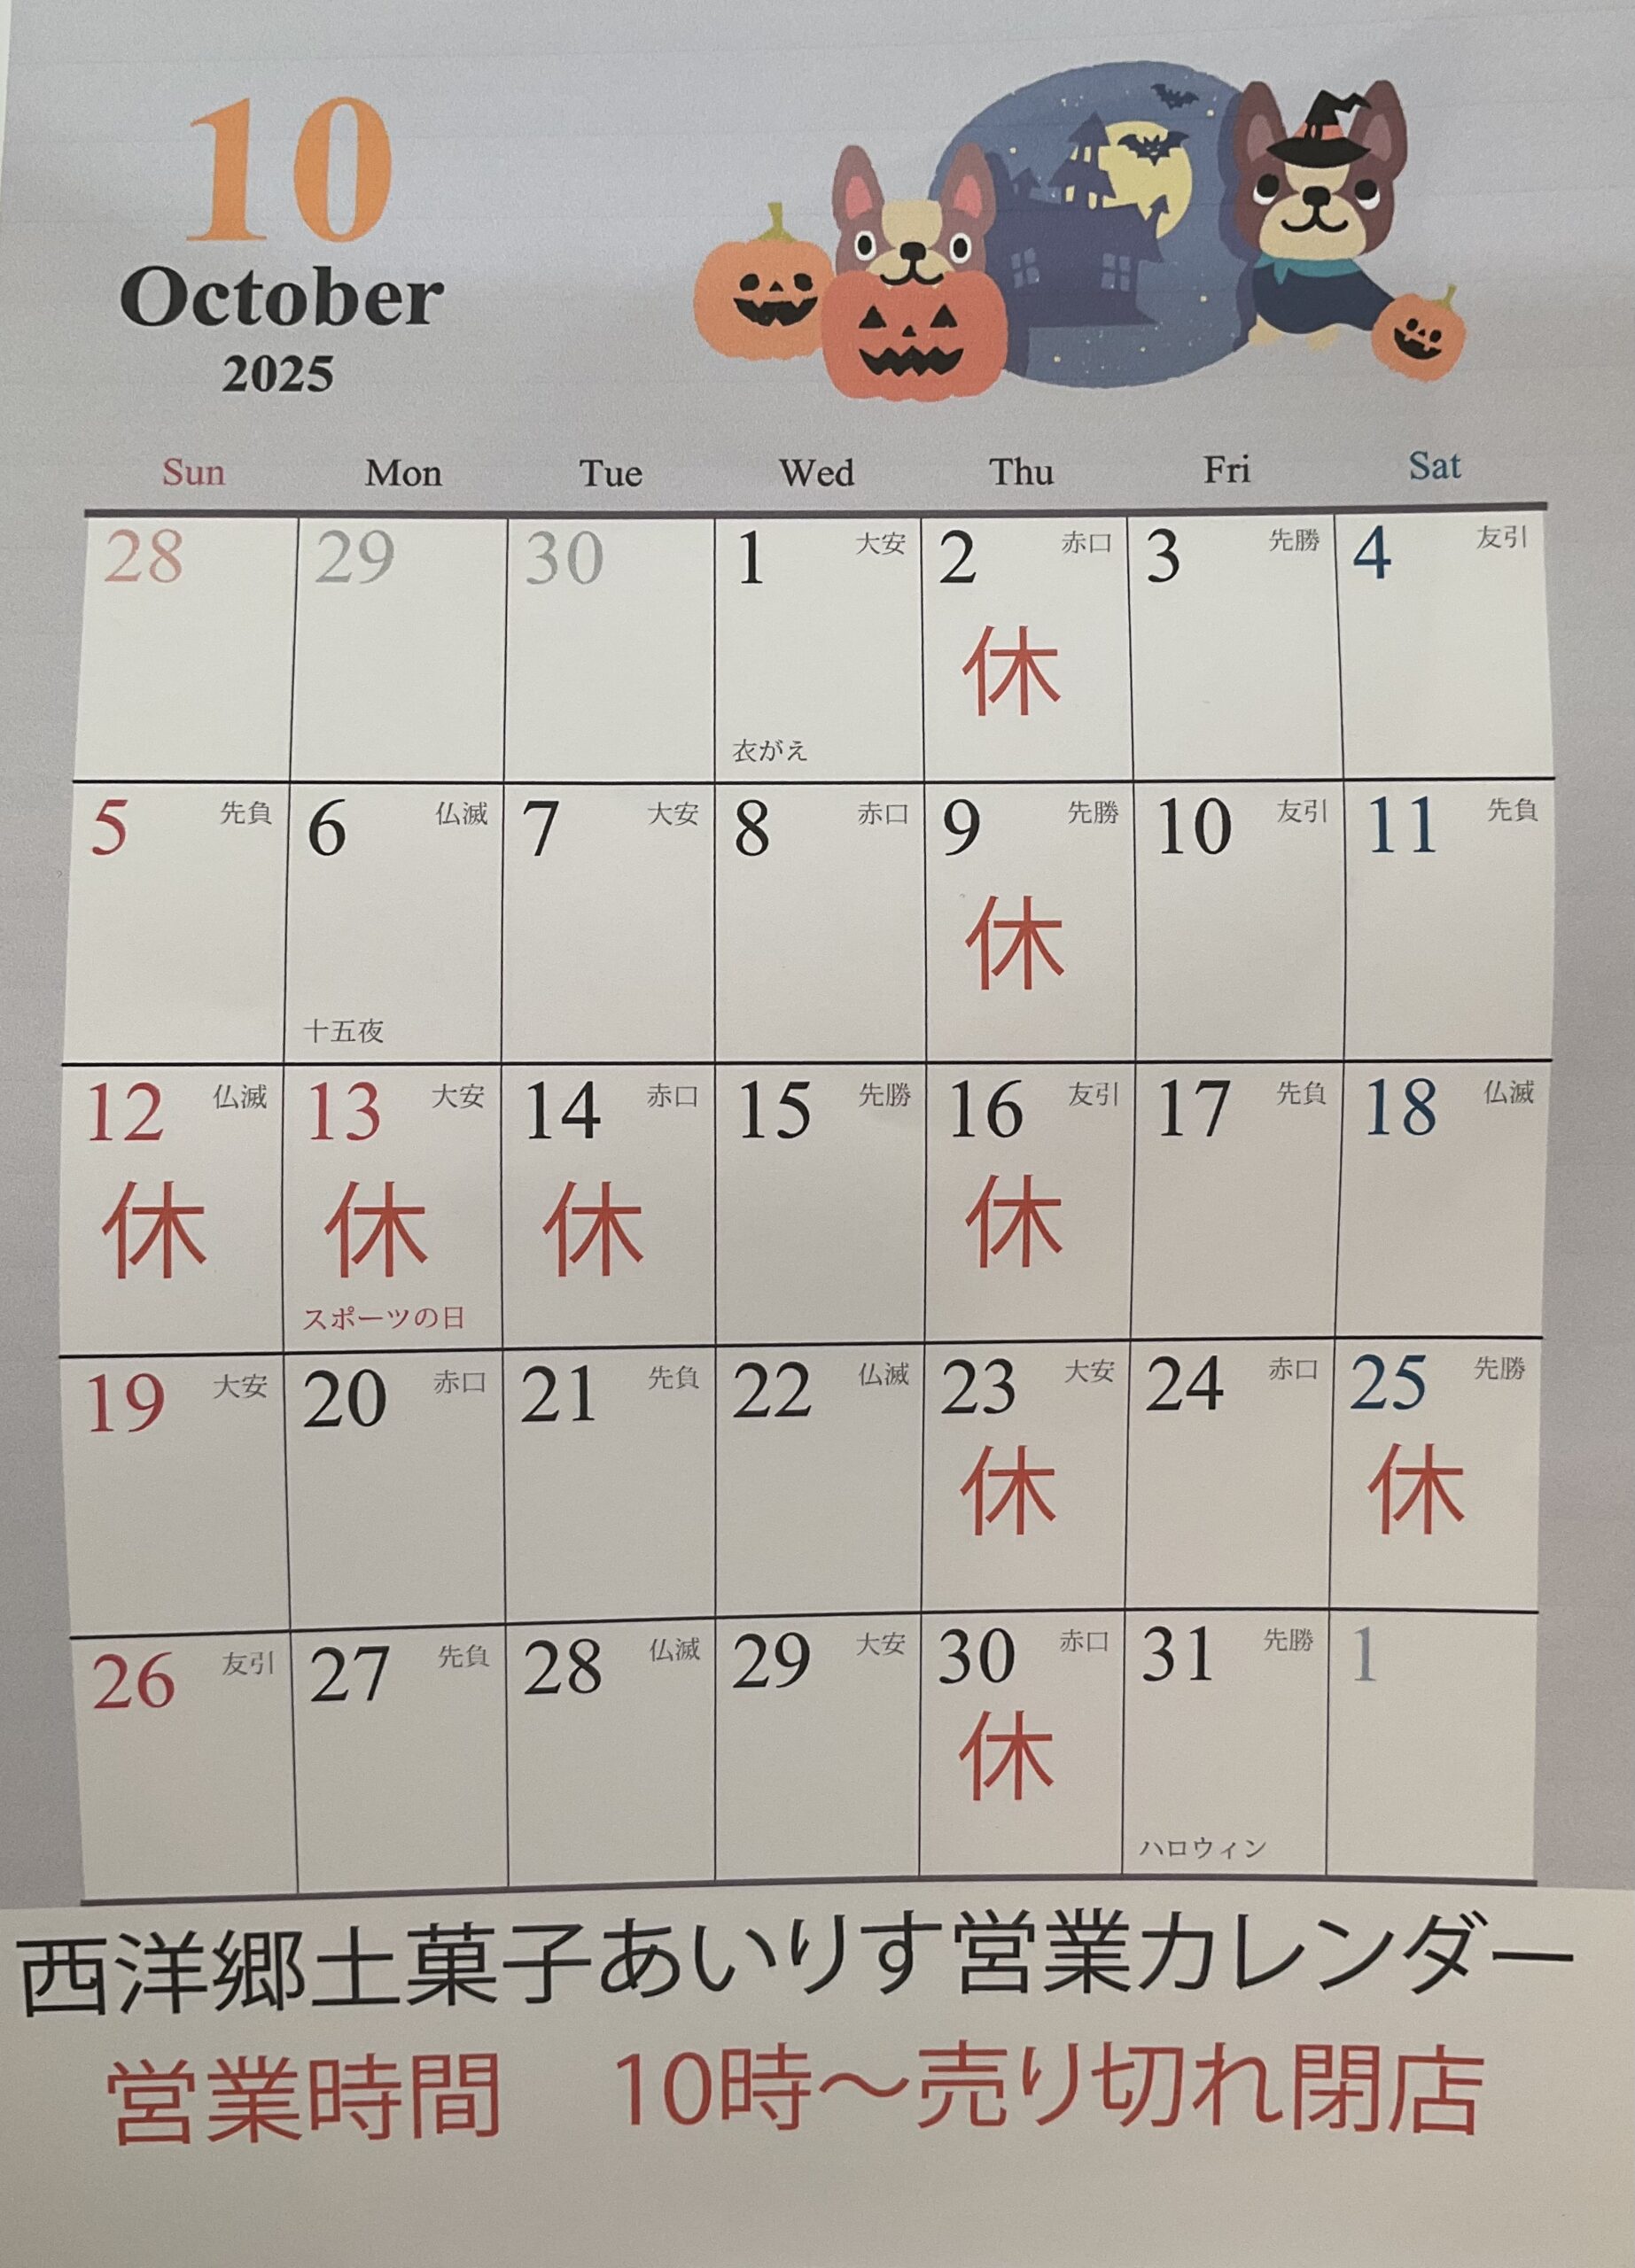 10
October
2025
Sun Mon Tue Wed Thu Fri Sat
28 29 30 1 大安 2 赤口 3 先勝 4 友引
休
衣がえ
5 先負 6 仏滅 7 大安 8 赤口 9 先勝 10 友引 11 先負
休
十五夜
12 仏滅 13 大安 14 赤口 15 先勝 16 友引 17 先負 18 仏滅
休 休 休 休
スポーツの日
19 大安 20 赤口 21 先負 22 仏滅 23 大安 24 赤口 25 先勝
休 休
26 友引 27 先負 28 仏滅 29 大安 30 赤口 31 先勝 1
休
ハロウィン
西洋郷土菓子あいりす営業カレンダー
営業時間 10時～売り切れ閉店